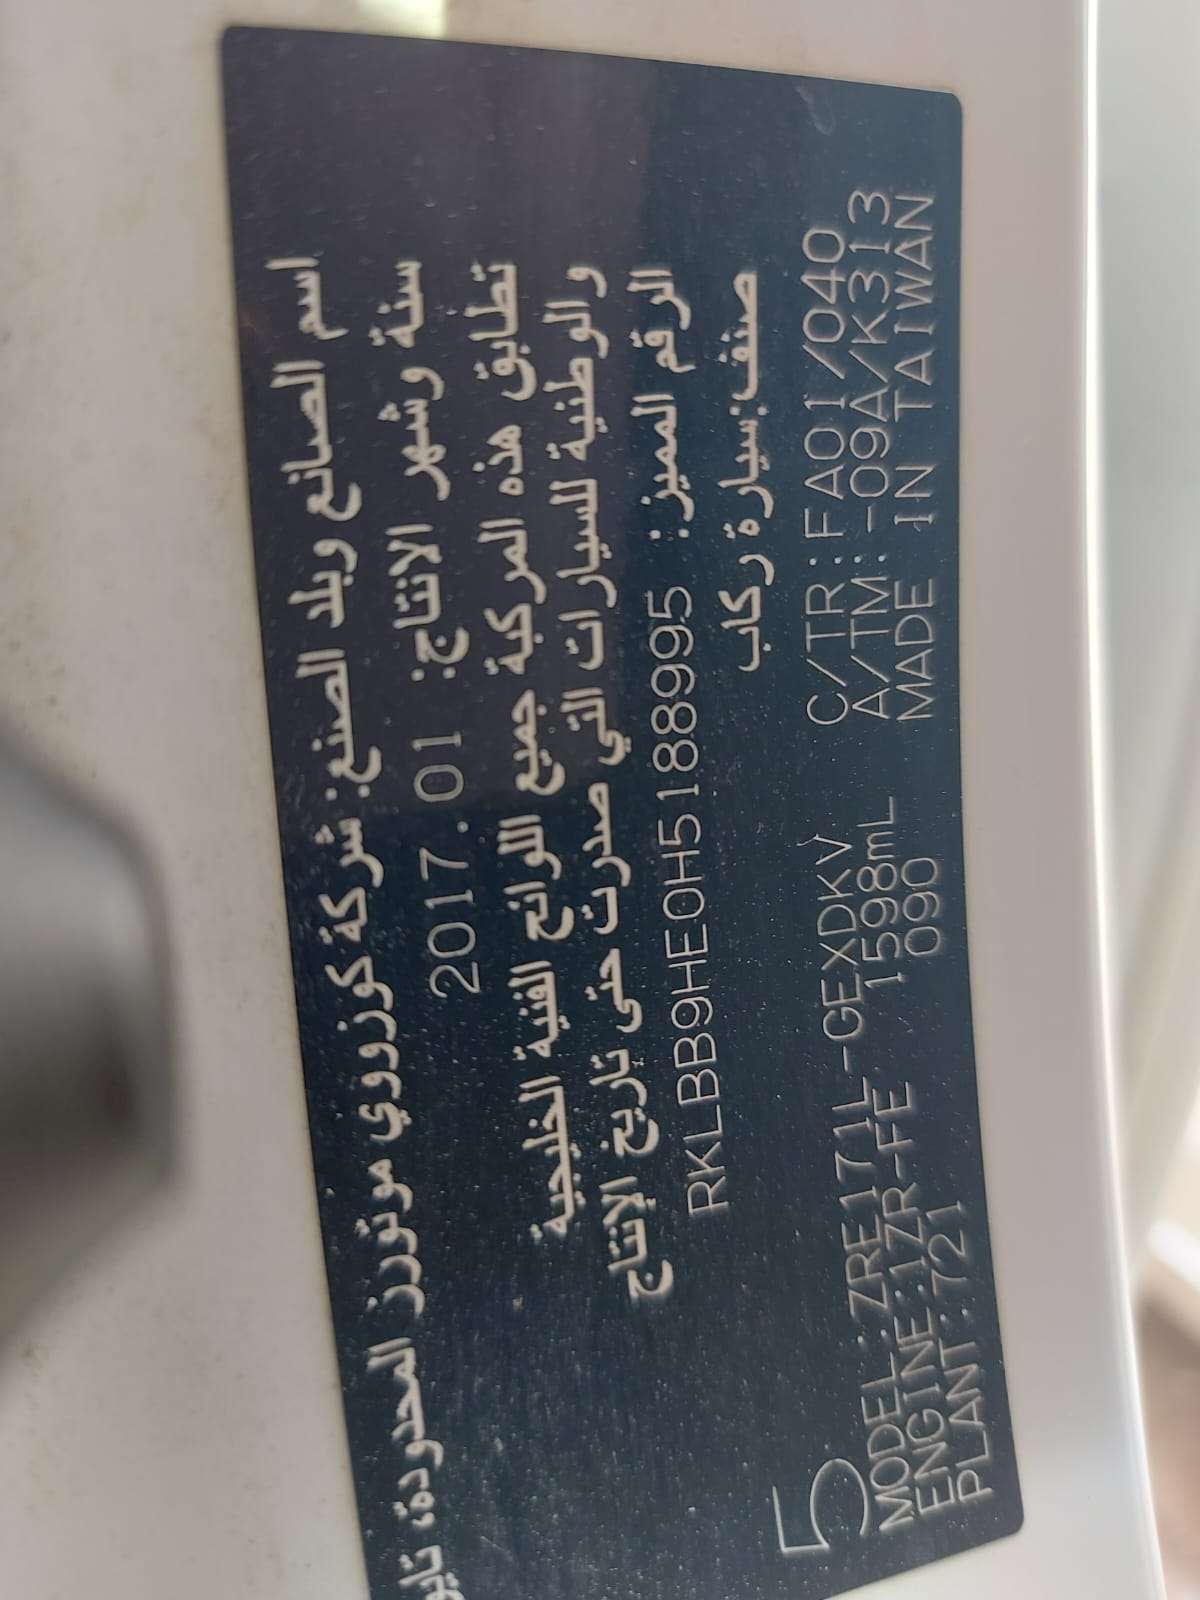 اسم الصانع وبلد الصنع: شركة كوزووي موتورز المحدودة
سنة وشهر الانتاج: 2017.01
تطابق هذه المركبة جميع اللوائح الفنية الخليجية
والوطنية للسيارات التي صدرت حتى تاريخ الإنتاج
الرقم المميز: RKLBB9HE0H5188995
صنف: سيارة ركاب
5
MODEL:ZRE171L-GEXDKV C/TR:FA01/040
ENGINE:1ZR-FE 1598mL A/TM:-09A/K313
PLANT:721 090 MADE IN TAIWAN